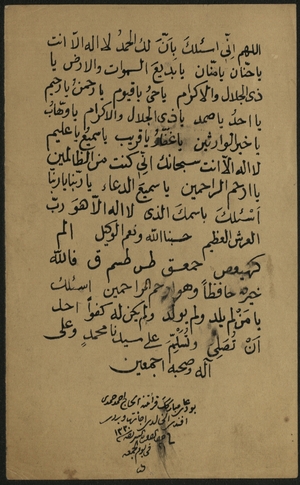 اللهم انى اسئلك بأنّ لك الحمد لا اله الا انت
يا حنّان يا منّان يا بديع السموات والارض يا
ذى الجلال والاكرام يا حىّ يا قيوم يا رحمن يا رحيم
يا احد يا صمد يا ذى الجلال والاكرام يا وهّاب
يا خير الوارثين يا غفّار يا قريب يا سميع يا عليم
لا اله الا انت سبحانك انى كنت من الظالمين
يا ارحم الراحمين يا سميع الدعاء يا ربّنا يا ربّنا
اسئلك باسمك الذى لا اله الا هو ربّ
العرش العظيم حسبنا الله ونعم الوكيل الم
كهيعص حمعسق طس طسم ق فالله
خير حافظاً وهو ارحم الراحمين اسئلك
يا من لم يلد ولم يولد ولم يكن له كفواً احد
أن تصلّى وتسلّم على سيدنا محمدٍ وعلى
آله وصحبه اجمعين
بو دعاى مبارك
فى يوم الجمعه